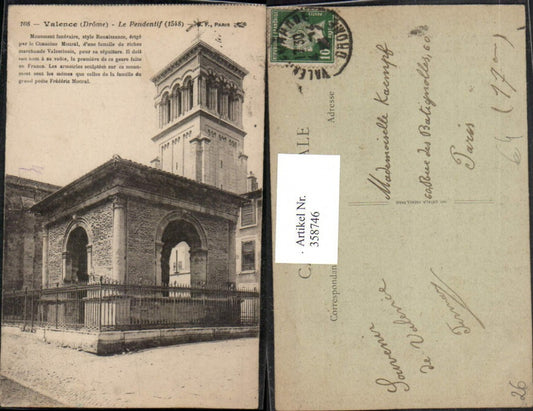 708 - Valence (Drôme) - Le Pendentif (1548) - F., PARIS
Monument funéraire, style Renaissance, érigé
par le Chanoine Mistral, d'une famille de riches
marchands Valentinois, pour sa sépulture. Il doit
son nom à sa voûte, la première de ce genre faite
en France. Les armoiries sculptées sur ce monu-
ment sont les mêmes que celles de la famille du
grand poète Frédéric Mistral.
VALENCE
DROME
10
Adresse
Mademoiselle Kaempf
60 Rue des Batignolles, 60
Paris
Correspondan
Artikel Nr.
358746
Souvenir
de Valence
26